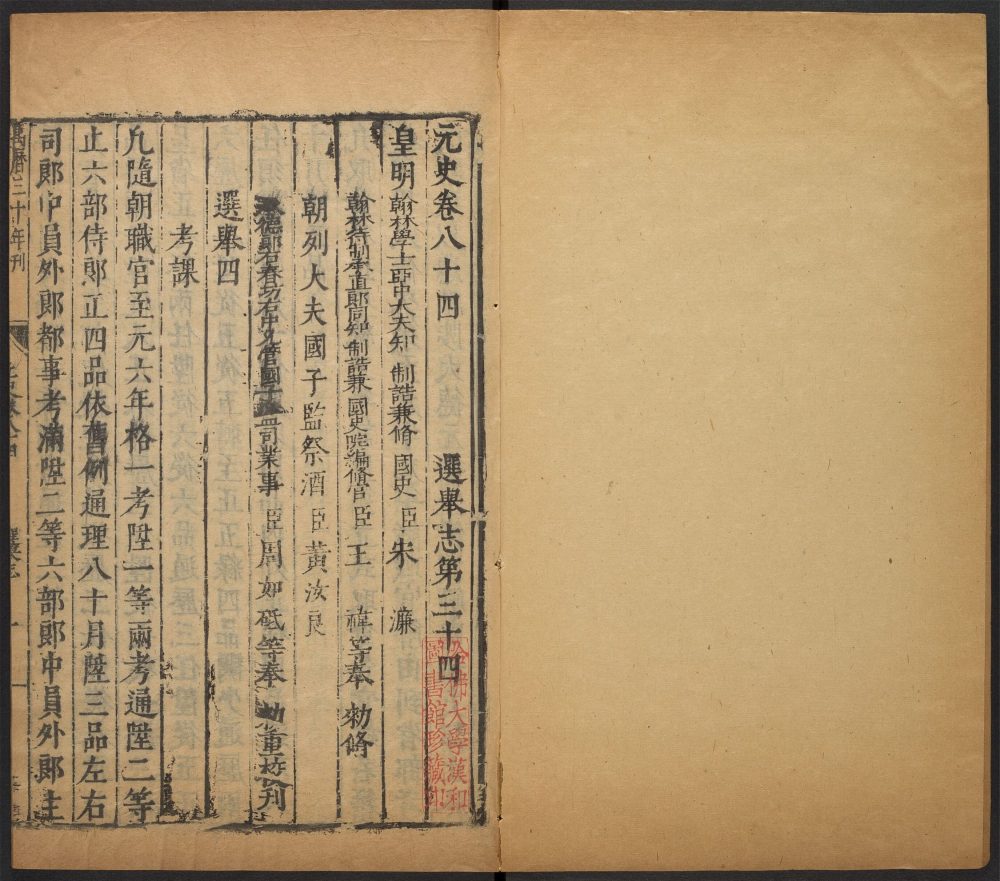 元史卷八十四 選舉志第三十四
皇明翰林學士亞中大夫知 制誥兼脩 國史臣宋 濂
翰林待制承直郎同知 制誥兼 國史院編脩官臣王 禕等奉 勑脩
朝列大夫國子監祭酒臣黃汝良
承德郎右春坊右中允管國子監司業事臣周如砥等奉 勑重挍刊
選舉四
考課
凢隨朝職官至元六年格一考陞一等兩考通陞二等
止六部侍郎正四品依舊例通理八十月陞三品左右
司郎中員外郎都事考滿陞二等六部郎中員外郎主
萬曆三十年刊
哈佛大學漢和
圖書館珍藏印